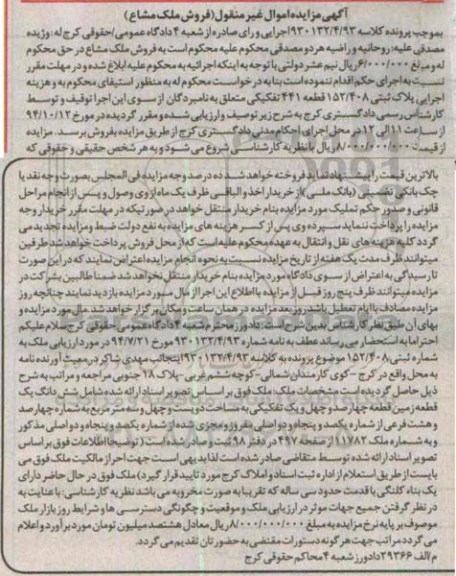 آگهی مزایده اموال غیر منقول (فروش ملک مشاع)
بموجب پرونده کلاسه ۹۳۰۱۳۲/۴/۹۳ اجرایی و رای صادره از شعبه ۴ دادگاه عمومی/حقوقی کرج له: وژیده
مصدقی علیه: روحانیه و راضیه هر دو مصدقی محکوم علیه محکوم است به فروش ملک مشاع در حق محکوم
له و مبلغ ۶/۰۰۰/۰۰۰ ریال نیم عشر دولتی با توجه به اینکه اجرائیه به محکوم علیه ابلاغ شده و در مهلت مقرر
نسبت به اجرای حکم اقدام ننموده است بنا به درخواست محکوم له به منظور استیفای محکوم به و هزینه
اجرایی پلاک ثبتی ۱۵۲/۴۰۸ قطعه ۴۴۱ تفکیکی متعلق به نامبردگان از سوی این اجرا توقیف و توسط
کارشناس رسمی دادگستری کرج به شرح زیر توصیف و ارزیابی شده و مقرر گردیده در مورخ ۹۴/۱۰/۱۲
از ساعت ۱۱ الی ۱۲ در محل اجرای احکام مدنی دادگستری کرج از طریق مزایده بفروش برسد. مزایده
از قیمت ۸/۰۰۰/۰۰۰/۰۰۰ ریال با نظریه کارشناسی شروع می شود و به هر شخص حقیقی و حقوقی که
بالاترین قیمت را پیشنهاد نماید فروخته خواهد شد ده درصد وجه مزایده فی المجلس بصورت وجه نقد یا
چک بانکی تضمینی (بانک ملی) از خریدار اخذ و الباقی ظرف یک ماه از وی وصول و پس از انجام مراحل
قانونی و صدور حکم تملیک مورد مزایده بنام خریدار منتقل خواهد در صورتیکه در مهلت مقرر خریدار وجه
مزایده را پرداخت ننماید سپرده وی پس از کسر هزینه های مزایده به نفع دولت ضبط و مزایده تجدید می
گردد کلیه هزینه های نقل و انتقال به عهده محکوم علیه است که از محل فروش پرداخت خواهد شد طرفین
میتوانند ظرف مدت یک هفته از تاریخ مزایده نسبت به نحوه انجام مزایده اعتراض نمایند که در این صورت
تا رسیدگی به اعتراض از سوی دادگاه مورد مزایده بنام خریدار منتقل نخواهد شد ضمنا طالبین بشرکت در
مزایده میتوانند ظرف پنج روز قبل از مزایده با اطلاع این اجرا از مال مورد مزایده بازدید نمایند چنانچه روز
مزایده مصادف با ایام تعطیل باشد روز بعد مزایده در همان ساعت و مکان برگزار خواهد شد. مال مورد مزایده و
بهای آن طبق نظر کارشناس بدین شرح است: دادورز محترم شعبه ۴ دادگاه عمومی حقوقی کرج سلام علیکم
احتراما به استحضار می رساند عطف به نامه شماره ۹۳۰۱۳۲/۴/۹۳ مورخ ۹۴/۷/۲۱ در مورد ارزیابی ملک به
شماره ثبتی ۱۵۲/۴۰۸ موضوع پرونده به کلاسه ۹۳۰۱۳۲/۴/۹۳ اینجانب مهدی شاکر در معیت آورنده نامه
به محل واقع در کرج -کوی کارمندان شمالی-کوچه ششم غربی-پلاک ۱۸ جنوبی مراجعه و مراتب به شرح
ذیل حاصل گردیده است مشخصات ملک: ملک فوق بر اساس تصویر اسناد ارائه شده شامل شش دانگ یک
قطعه زمین قطعه چهارصد و چهل و یک تفکیکی به مساحت دویست و چهل و سه متر مربع به شماره چهارصد
و هشت فرعی از شماره یکصد و پنجاه و دو اصلی مفروز و مجزی شده از شماره یکصد و پنجاه و دو اصلی مذکور
و به شماره ملک ۱۱۷۸۲ از صفحه ۴۹۷ در دفتر ۹۸ ثبت و صادر شده است (توضیحا اطلاعات فوق بر اساس
تصویر اسناد ارائه شده توسط متقاضی صادر شده است لذا بدیهی است جهت احراز مالکیت ملک فوق می
بایست از طریق استعلام از اداره ثبت اسناد و املاک کرج مورد تایید قرار گیرد) ملک فوق در حال حاضر دارای
یک بناء کلنگی با قدمت حدود سی ساله که تقریبا به صورت مخروبه می باشد نظریه کارشناسی: با عنایت به
در نظر گرفتن جمیع جهات موثر در ارزیابی ملک و موقعیت و چگونگی دسترسی ها و شرایط روز بازار ملک
موصوف بر پایه نرخ مزایده به مبلغ ۸/۰۰۰/۰۰۰/۰۰۰ ریال معادل هشتصد میلیون تومان مورد برآورد و اعلام
می گردد مراتب جهت هر گونه دستورات مقتضی به حضورتان تقدیم می گردد.
م/الف ۲۹۳۶۶ دادورز شعبه ۴ محاکم حقوقی کرج